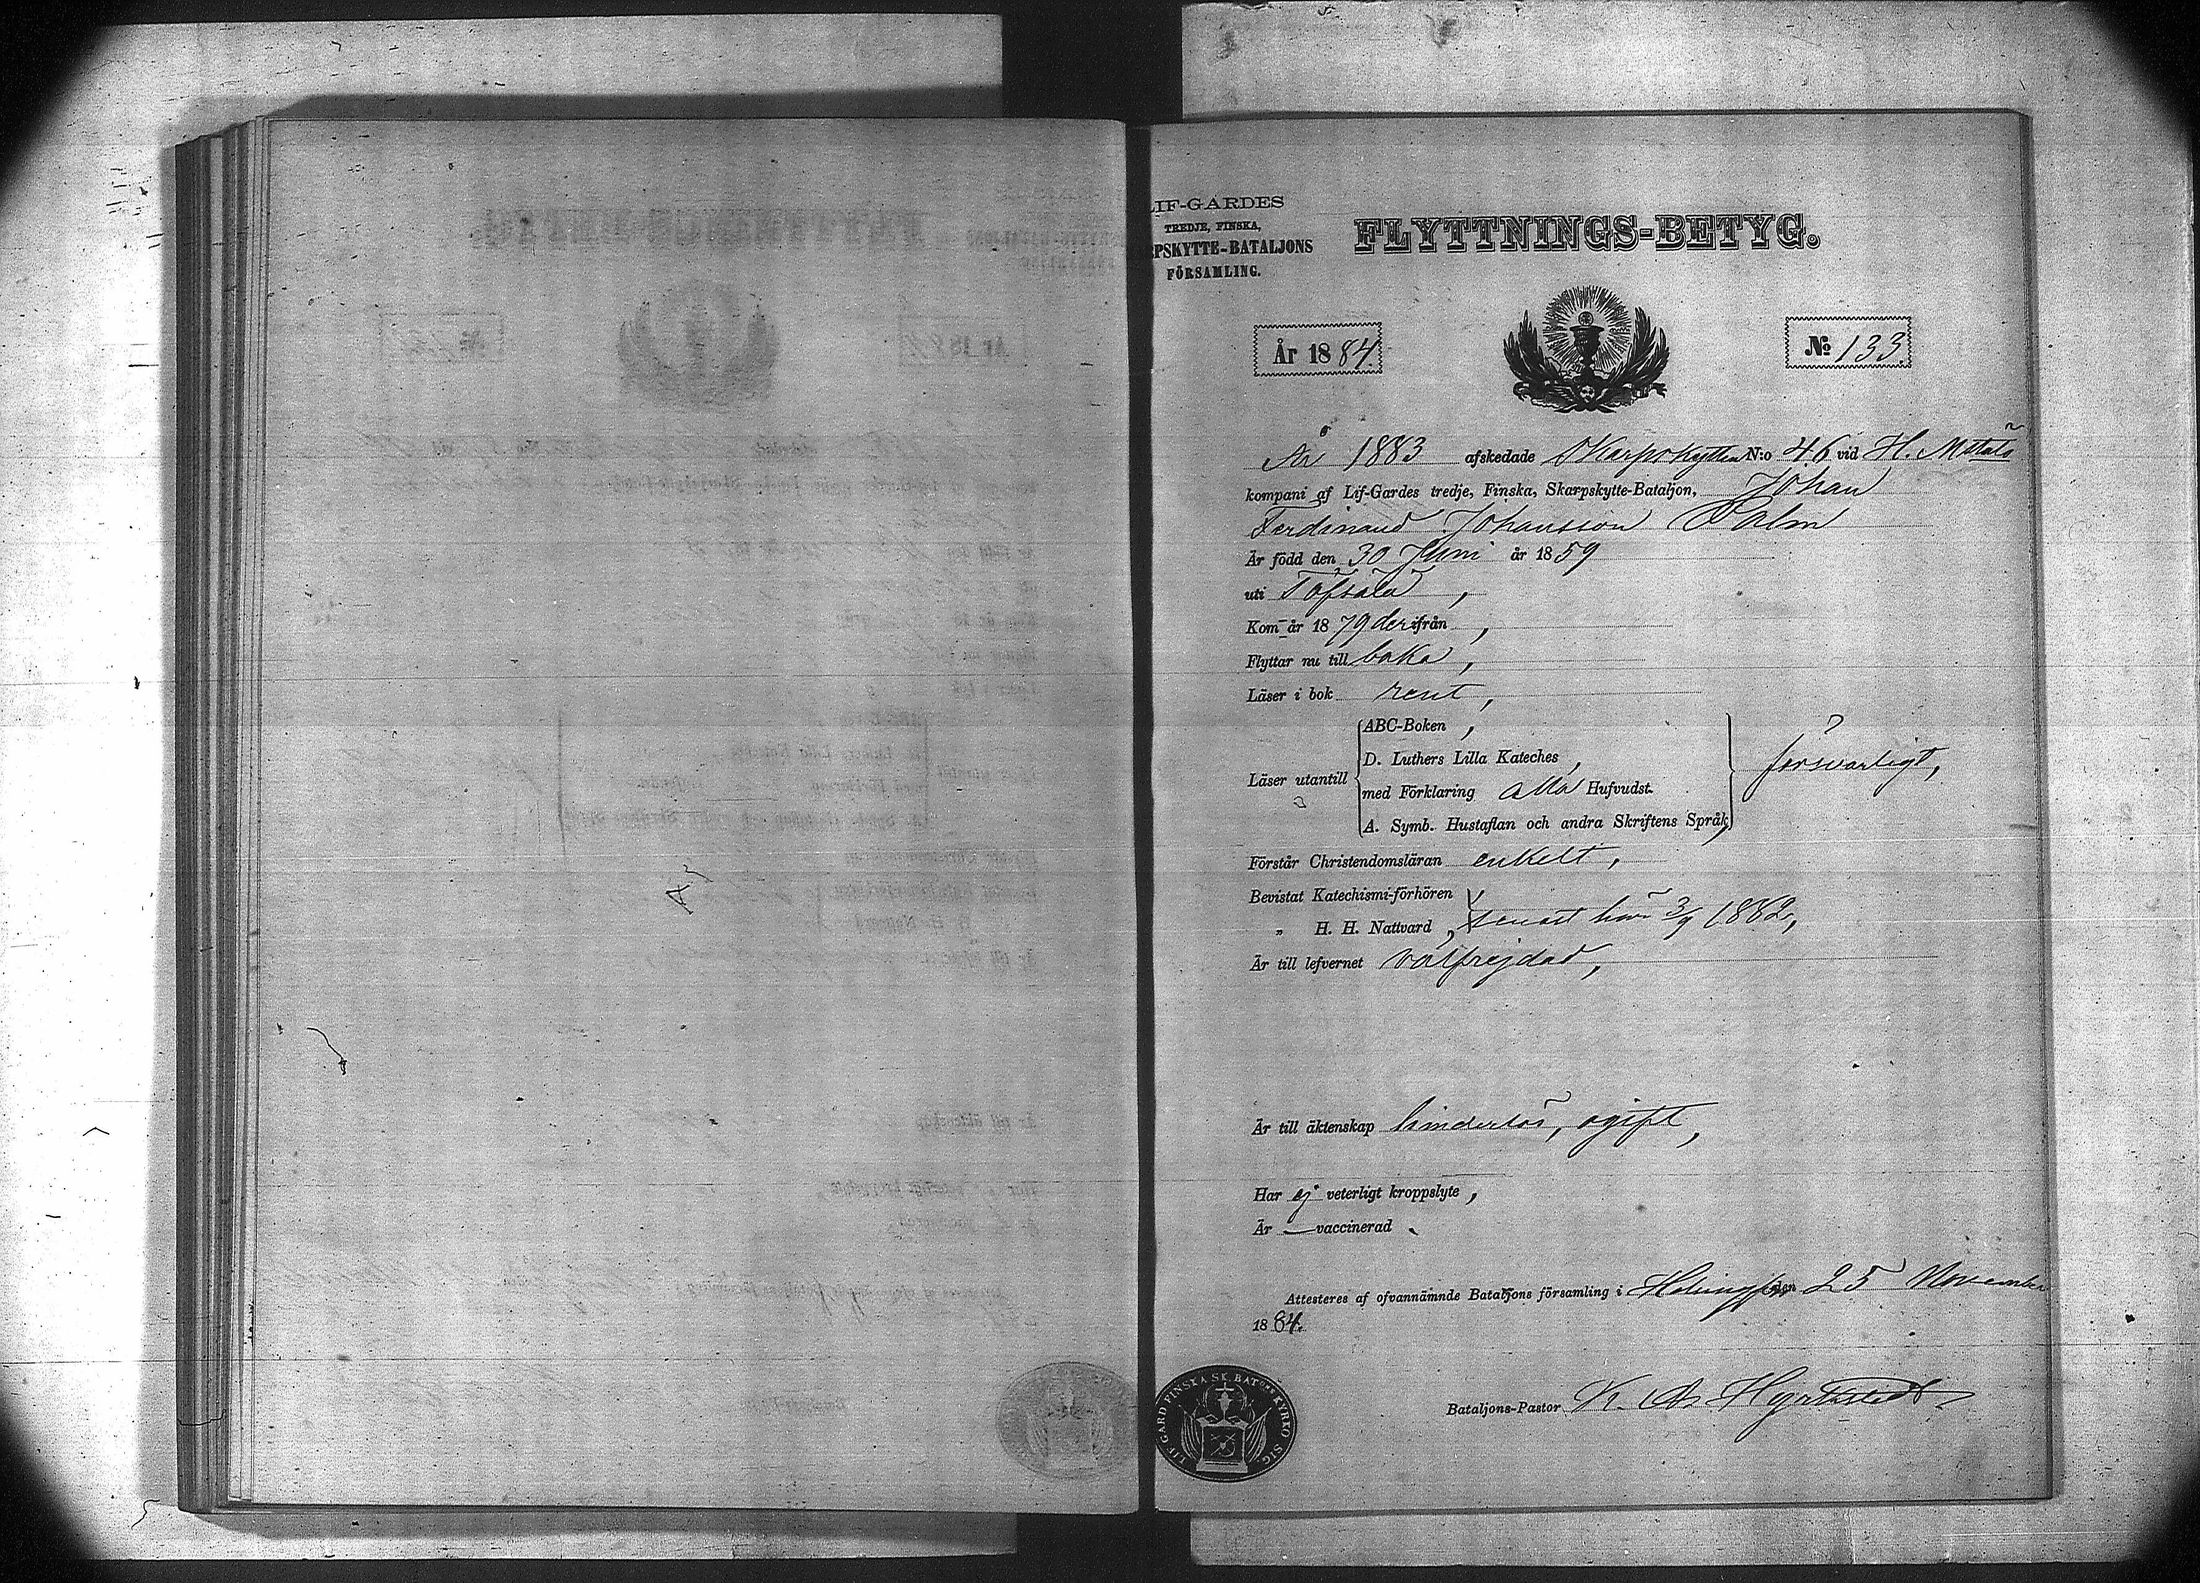 LIF-GARDES
TREDJE, FINSKA,
PSKYTTE-BATALJONS
FÖRSAMLING.
FLYTTNINGS-BETYG.
År 1884.
No 133.
År 1883 afskedade Skarpskytten N:o 46 vid H. M:ts
kompani af Lif-Gardes tredje, Finska, Skarpskytte-Bataljon, Johan
Ferdinand Johansson Palm
Är född den 30 Juni år 1859
uti Töfsala,
Kom år 1879 derifrån,
Flyttar nu till baka,
Läser i bok rent,
Läser utantill
ABC-Boken,
D. Luthers Lilla Kateches,
med Förklaring alla Hufvudst.
A. Symb. Hustaflan och andra Skriftens Språk,
försvarligt,
Förstår Christendomsläran enkelt,
Bevistat Katechismi-förhören,
„ H. H. Nattvard, senast här 3/9 1882,
Är till lefvernet välfrejdad,
Är till äktenskap hinderlös, ogift,
Har ej veterligt kroppslyte,
Är — vaccinerad.
Attesteras af ofvannämnde Bataljons församling i Helsingfors den 25 November
1884.
Bataljons-Pastor K. 
LIF GARD FINSKA SK. BAT:ONS KYRKO SIG.